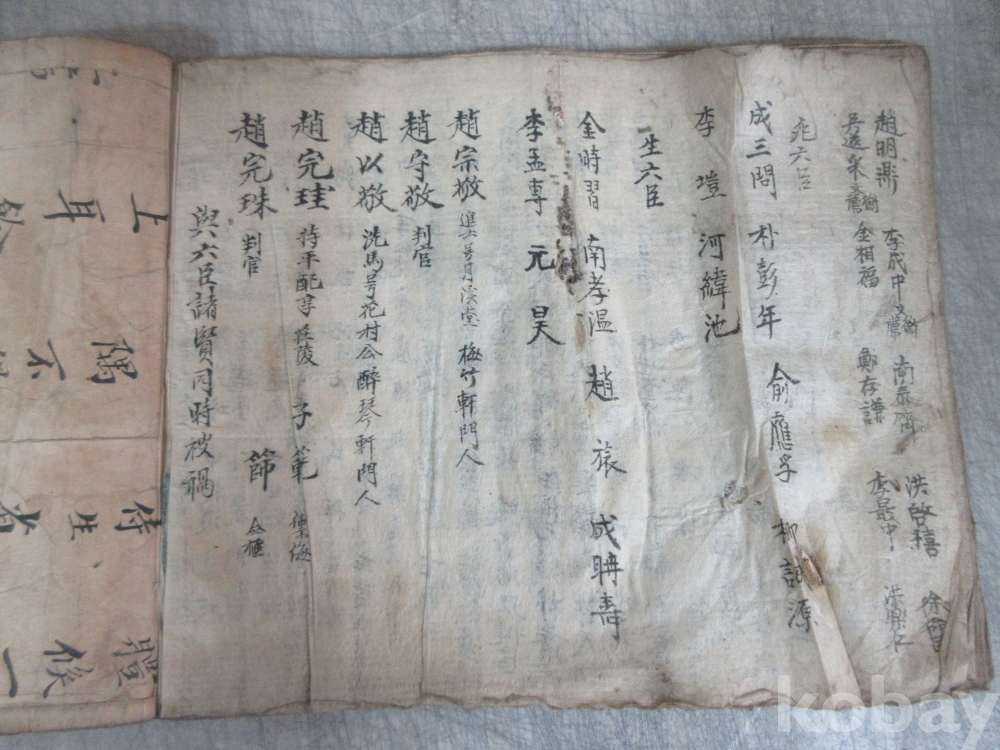 趙明鼎 李成中 南泰齊 洪啓禧 徐
吳遂采 金相福 鄭存謙 李最中 洪樂仁
死六臣
成三問 朴彭年 俞應孚 柳誠源
李塏 河緯地
生六臣
金時習 南孝温 趙旅 成聃壽
李孟專 元昊
趙宗敬 進士号月溪堂 梅竹軒門人
趙守敬 判官
趙以敬 洗馬号花村公醉琴軒門人
趙完珪 持平配享莊陵 子範
趙完珠 判官 節
與六臣諸賢同時被禍
上 隅 侍 體
耳 不 生 候
者 一
kobay